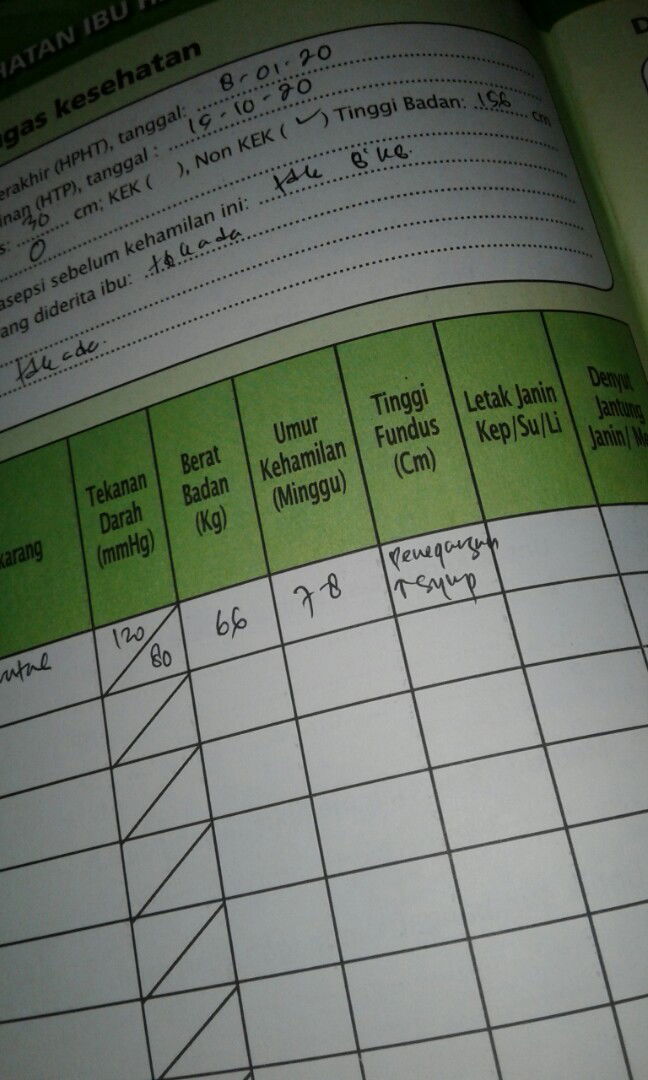 HATAN IBU H
gas kesehatan
erakhir (HPHT), tanggal: 8-01-20
inan (HTP), tanggal: 15-10-20
s: 30 cm; KEK ( ), Non KEK ( ✓ ) Tinggi Badan: 156 cm
0
asepsi sebelum kehamilan ini:
ang diderita ibu:
D
karang
Tekanan Darah (mmHg)
Berat Badan (Kg)
Umur Kehamilan (Minggu)
Tinggi Fundus (Cm)
Letak Janin Kep/Su/Li
Denyut Jantung Janin/ Me
120/80 66 7-8